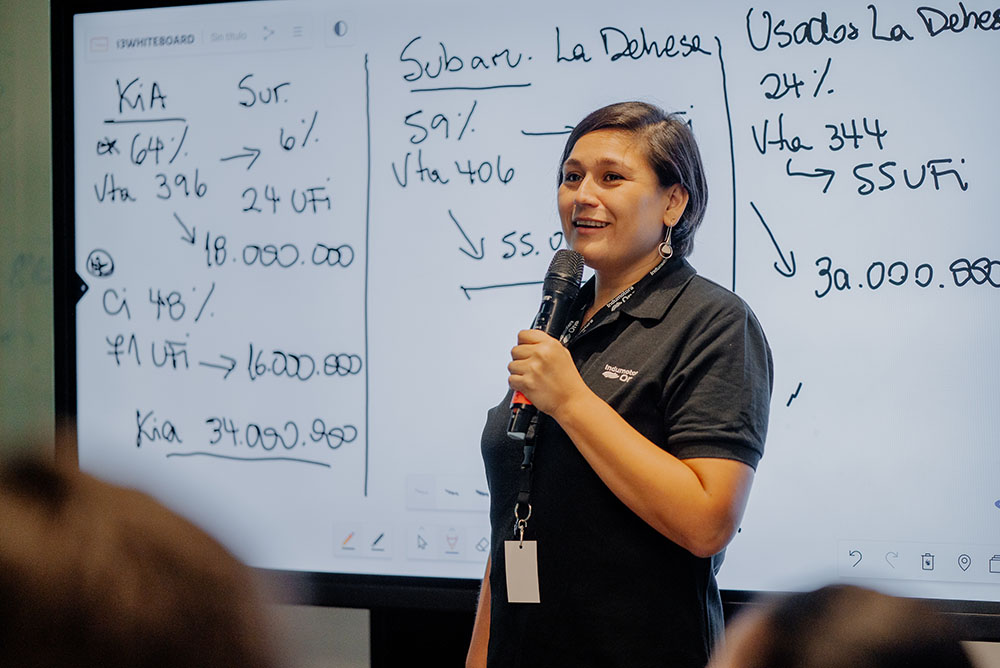 WHITEBOARD
Sin título
KIA Sur.
64% → 6%
Vta 396 24 UFi
18.000.000
Ci 48%
71 UFi → 16.000.000
Kia 34.000.000
Subaru. La Dehesa
59%
Vta 406
55.0
Usados La Dehes
24%
Vta 344
55 UFi
30.000.000
Indumotora
One
Indumoto
On